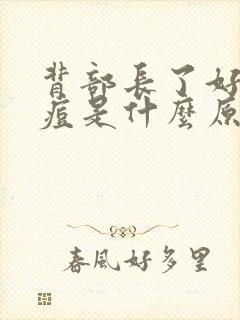 背部長了好
痘是什麼原
春風好多里